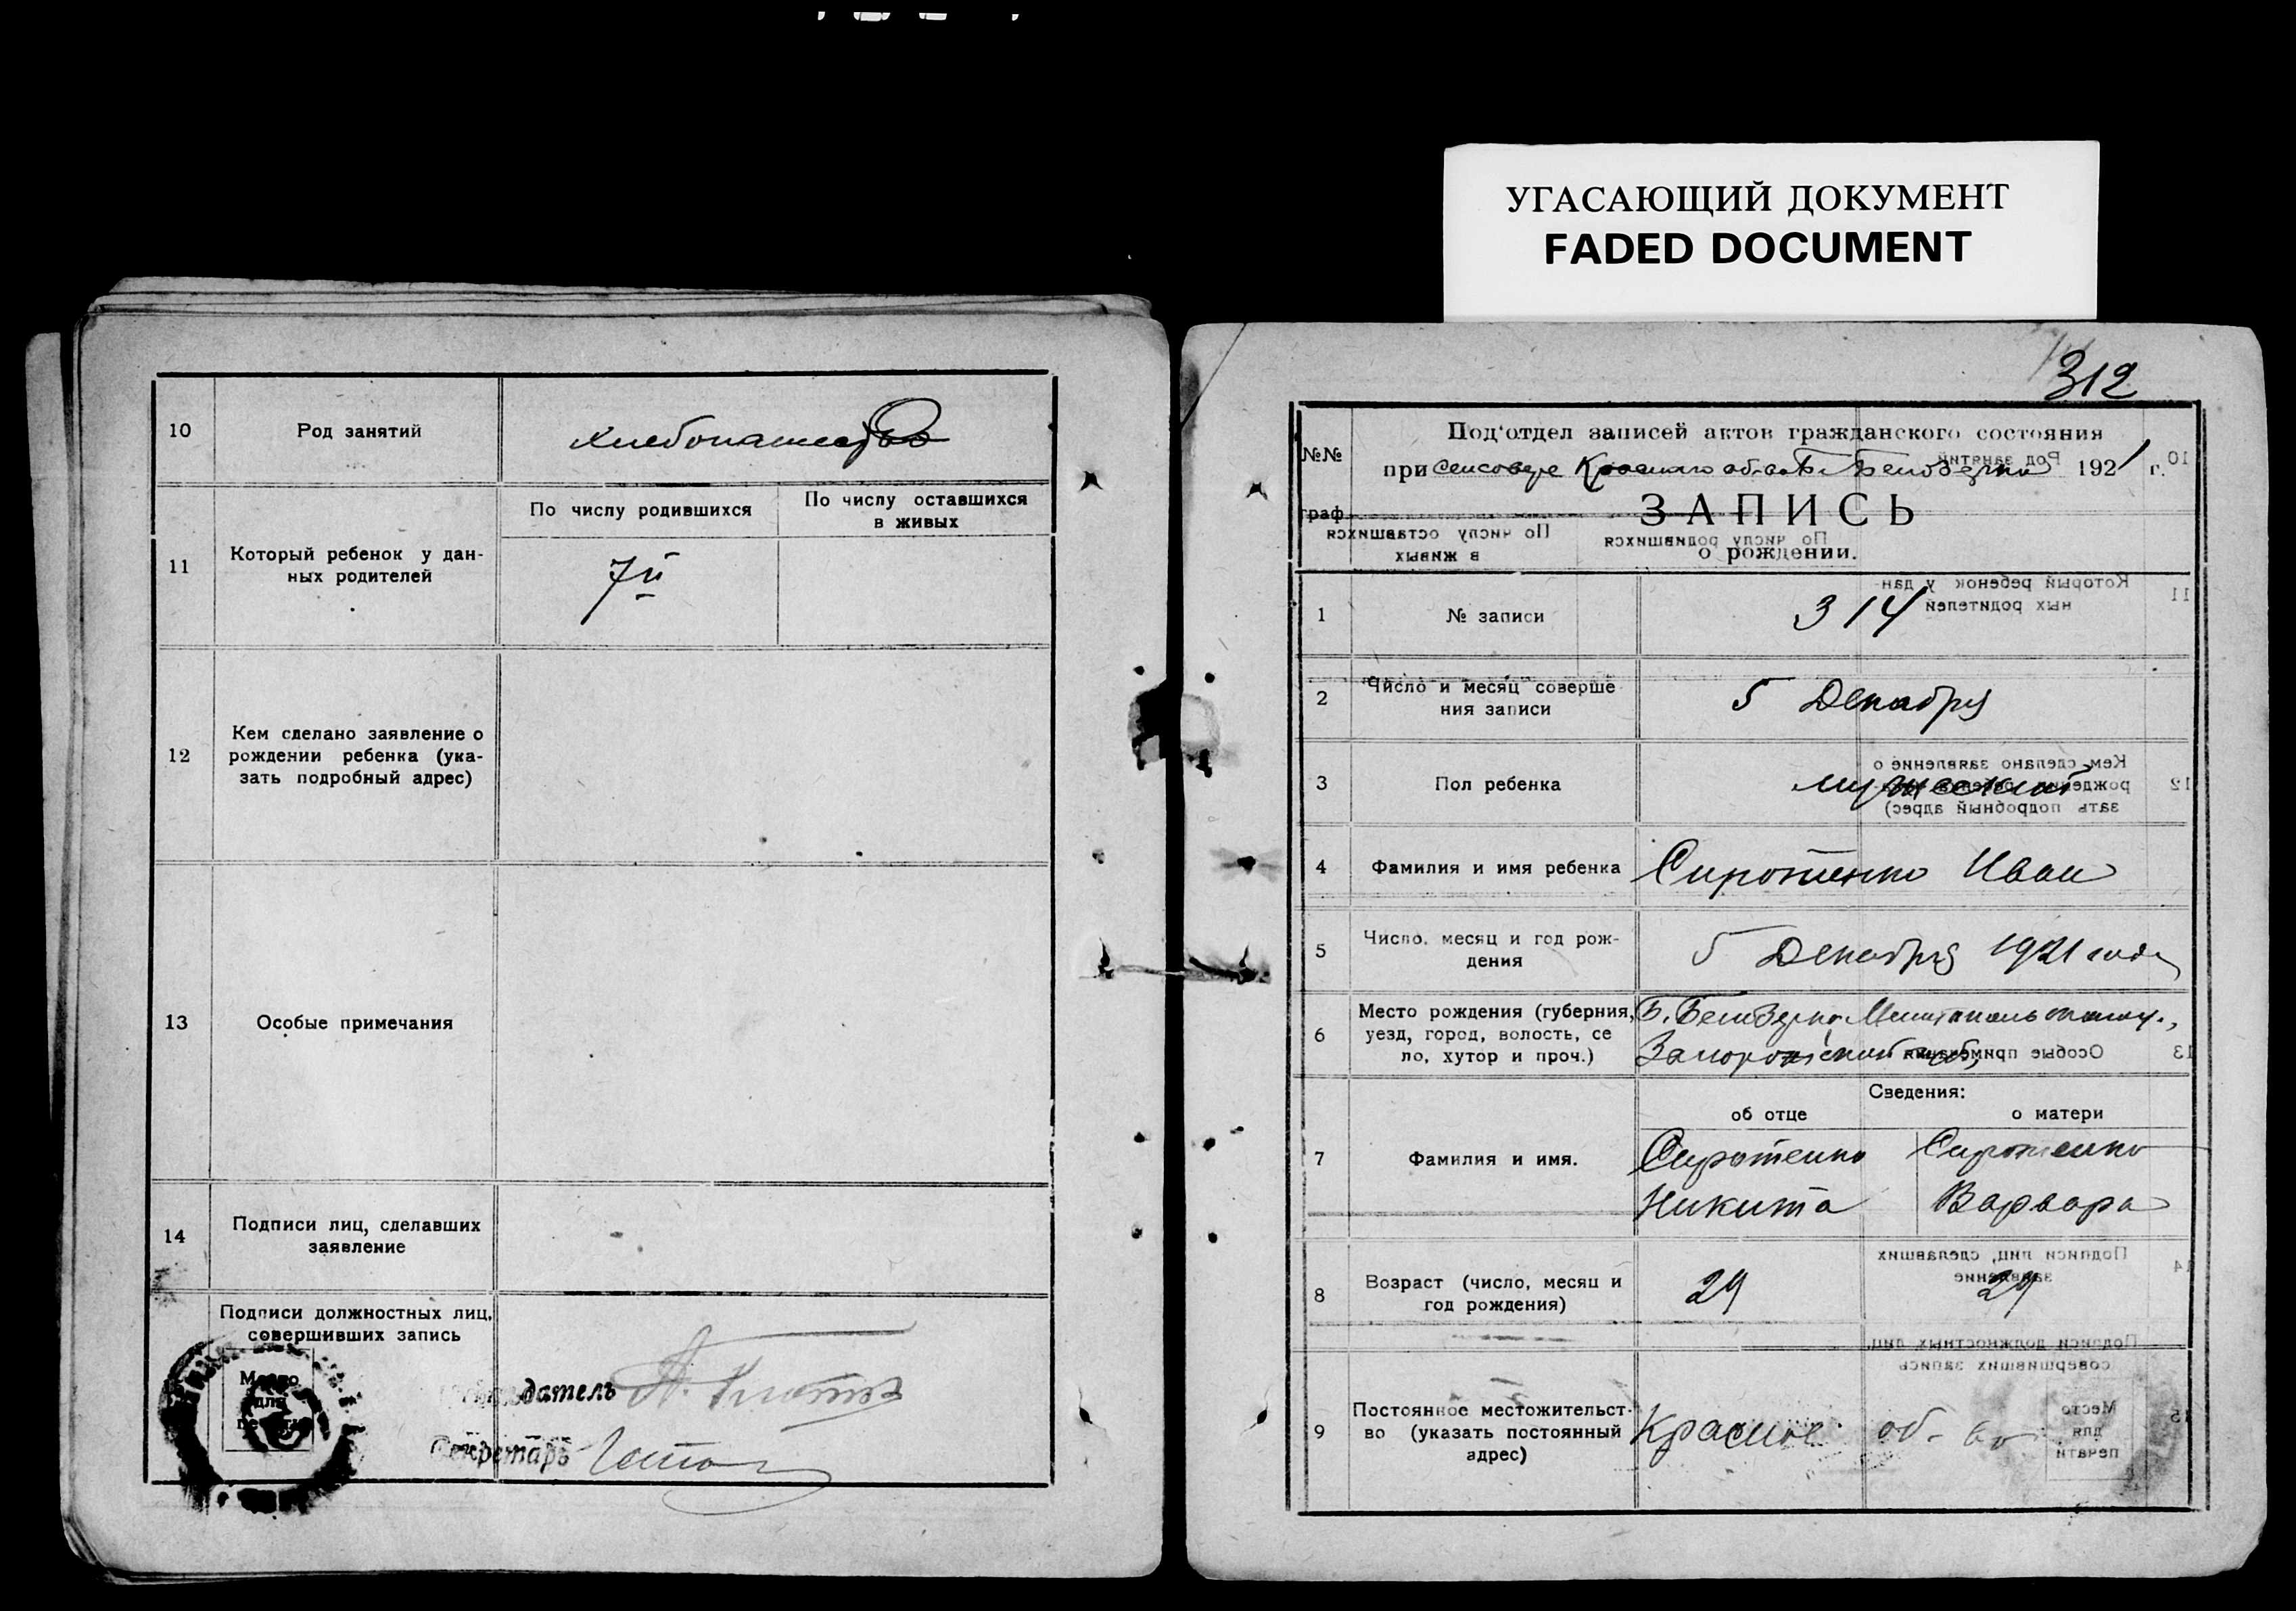 УГАСАЮЩИЙ ДОКУМЕНТ
FADED DOCUMENT
10
Род занятий
хлебопашество
11
Который ребенок у дан-
ных родителей
По числу родившихся
По числу оставшихся
в живых
7й
12
Кем сделано заявление о
рождении ребенка (ука-
зать подробный адрес)
13
Особые примечания
14
Подписи лиц, сделавших
заявление
Подписи должностных лиц,
совершивших запись
Место
для
печати
датель
Секретарь
312
№№
граф
Под'отдел записей актов гражданского состояния
при сельсовете Красного об-ва Б. Белозерка 1921 г.
ЗАПИСЬ
о рождении.
1
№ записи
314
2
Число и месяц соверше
ния записи
5 Декабря
3
Пол ребенка
мужеский
4
Фамилия и имя ребенка
Сиротенко Иван
5
Число, месяц и год рож-
дения
5 Декабря 1921 года
6
Место рождения (губерния,
уезд, город, волость, се
ло, хутор и проч.)
Б. Белозерка, Мелитопольского у.,
Запорожской губ.
Сведения:
об отце
о матери
7
Фамилия и имя.
Сиротенко
Никита
Сиротенко
Варвара
8
Возраст (число, месяц и
год рождения)
29
29
9
Постоянное местожительст-
во (указать постоянный
адрес)
Красное об-во